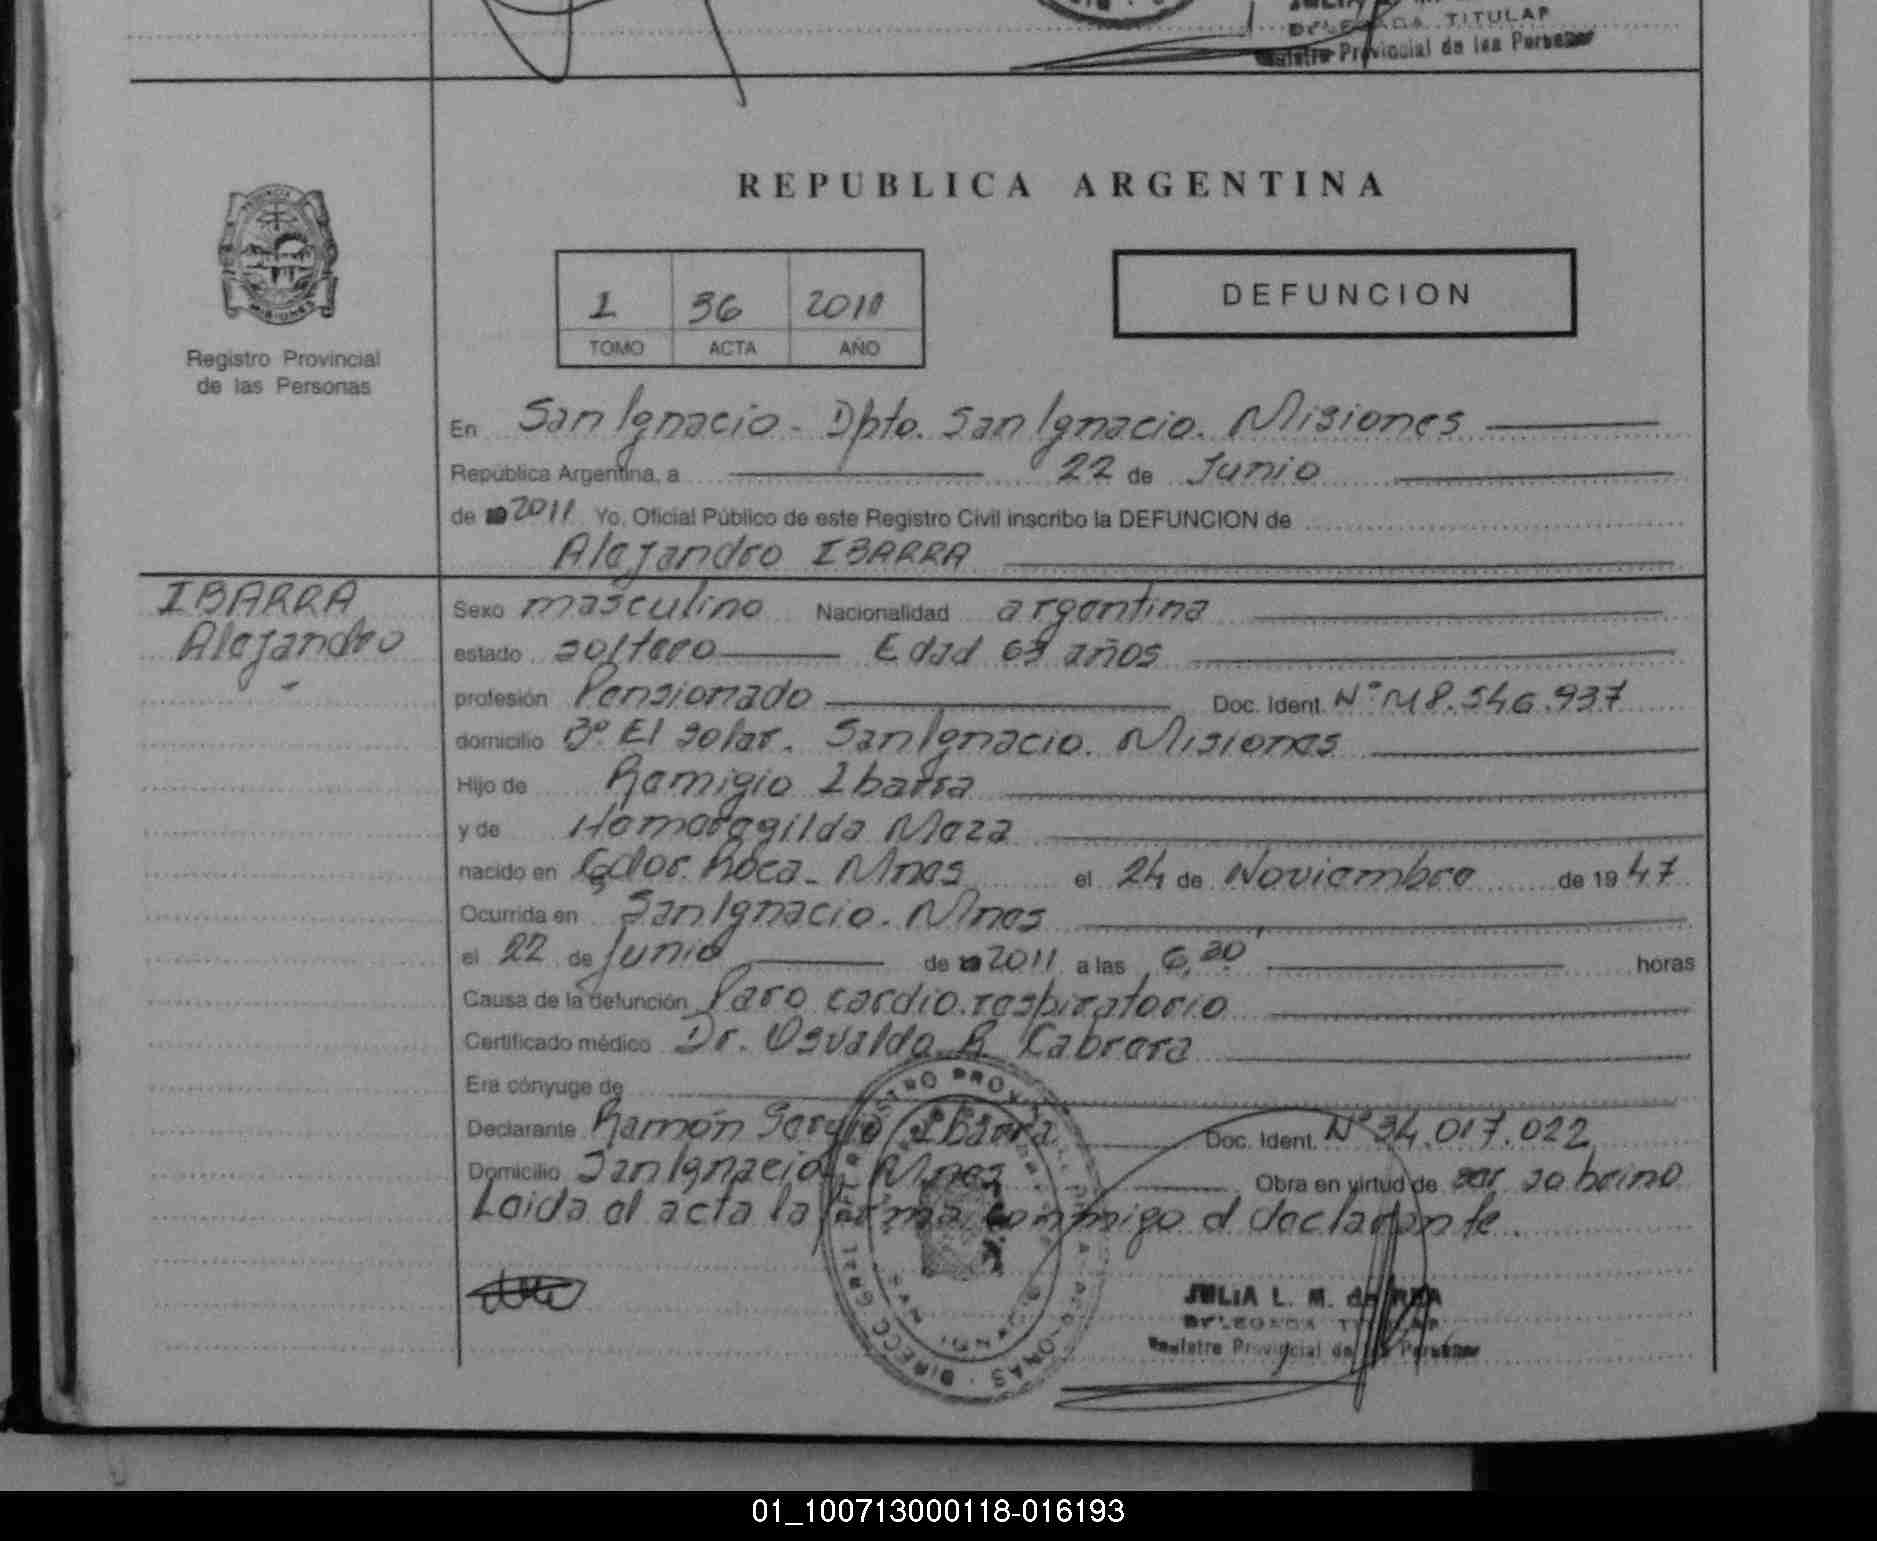 DELEGADA TITULAR
Registro Provincial de las Personas
REPUBLICA ARGENTINA
1 36 2011
TOMO ACTA AÑO
DEFUNCION
PROVINCIA
MISIONES
Registro Provincial
de las Personas
En San Ignacio - Dpto. San Ignacio. Misiones
República Argentina, a 22 de Junio
de 2011 Yo, Oficial Público de este Registro Civil inscribo la DEFUNCION de
Alejandro IBARRA
IBARRA
Alejandro
Sexo masculino Nacionalidad argentina
estado soltero Edad 63 años
profesión Pensionado Doc. Ident. Nº M8.546.937
domicilio Bº El Solar. San Ignacio. Misiones
Hijo de Remigio Ibarra
y de Hemeregilda Meza
nacido en Gdor. Roca - Mnes el 24 de Noviembre de 1947
Ocurrida en San Ignacio. Mnes
el 22 de Junio de 2011 a las 6,30 horas
Causa de la defunción Paro cardio.respiratorio
Certificado médico Dr. Osvaldo R Cabrera
Era cónyuge de
Declarante Ramón Sergio Ibarra Doc. Ident. Nº 34.017.022
Domicilio San Ignacio, Mnes Obra en virtud de ser sobrino
Leida el acta la firma conmigo el declarante.
JULIA L. M. de REA
DELEGADA TITULAR
Registro Provincial de las Personas
01_100713000118-016193